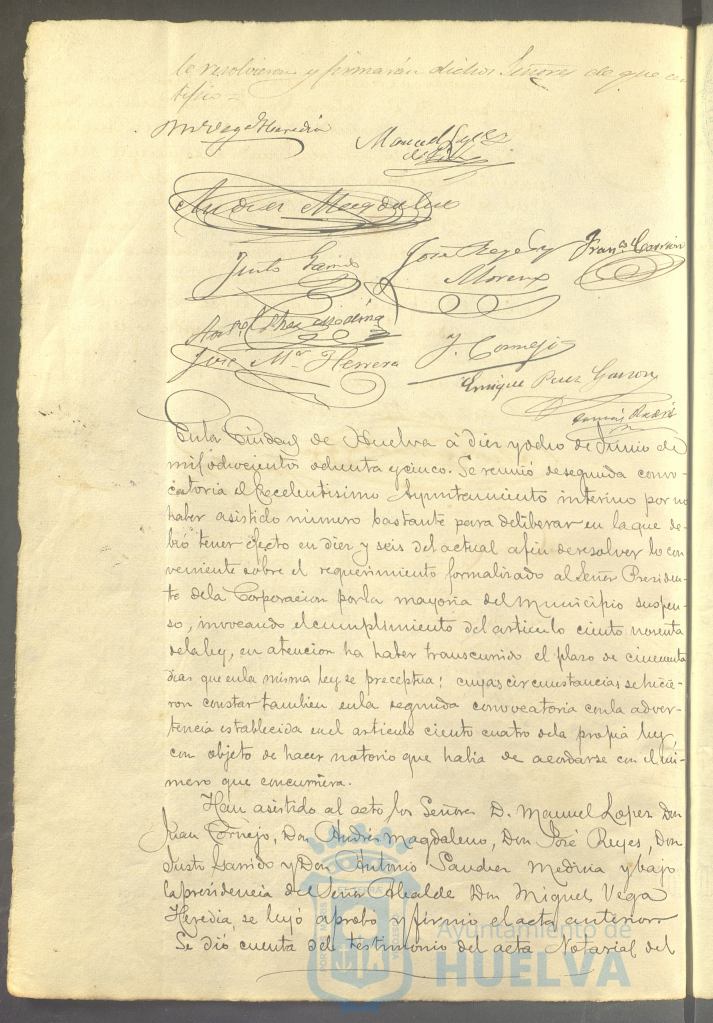 lo resolvieron y firmarán dichos Señores de que cer
tifico =
M. Vega Heredia
Manuel Lopez
Andres Magdaleno
Justo Garrido
José Reyes y
Moreno
Franco Carrion
Anto Schez Medina
José Ma Herrera
J. Cornejo
Enrique Perez Garzon
En la Ciudad de Huelva á diez y ocho de Junio de
mil ochocientos ochenta y cinco. Se reunió de segunda convo-
catoria el Excelentisimo Ayuntamiento interino por no
haber asistido número bastante para deliberar en la que de-
bió tener efecto en diez y seis del actual a fin de resolver lo con
veniente sobre el requerimiento formalizado al Señor Presiden-
te de la Corporacion por la mayoria del Municipio suspen-
so, invocando el cumplimiento del articulo ciento noventa
de la ley, en atencion ha haber transcurrido el plazo de cincuenta
dias que en la misma ley se preceptua; cuyas circunstancias se hicie-
ron constar tambien en la segunda convocatoria con la adver-
tencia establecida en el articulo ciento cuatro de la propia ley
con objeto de hacer notorio que habia de acordarse con el nú-
mero que concurriera.
Han asistido al acto los Señores D. Manuel Lopez Don
Juan Cornejo, Don Andrés Magdaleno, Don José Reyes, Don
Justo Garrido y Don Antonio Sanchez Medina y bajo
la presidencia del Señor Alcalde Don Miguel Vega
Heredia, se leyó aprobó y firmó el acta anterior
Se dió cuenta del testimonio del acta Notarial del
Ayuntamiento de
HUELVA